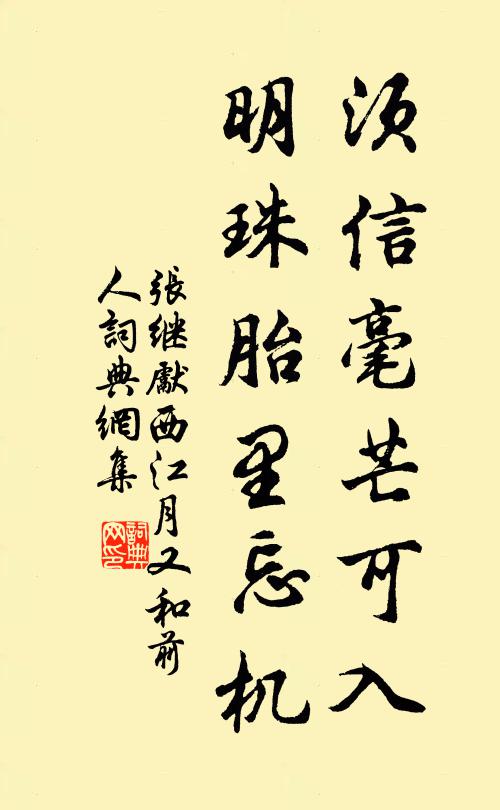 须信毫芒可入
明珠胎里忘机
張继獻西江月又和前
人詞典網集
詞典
网印